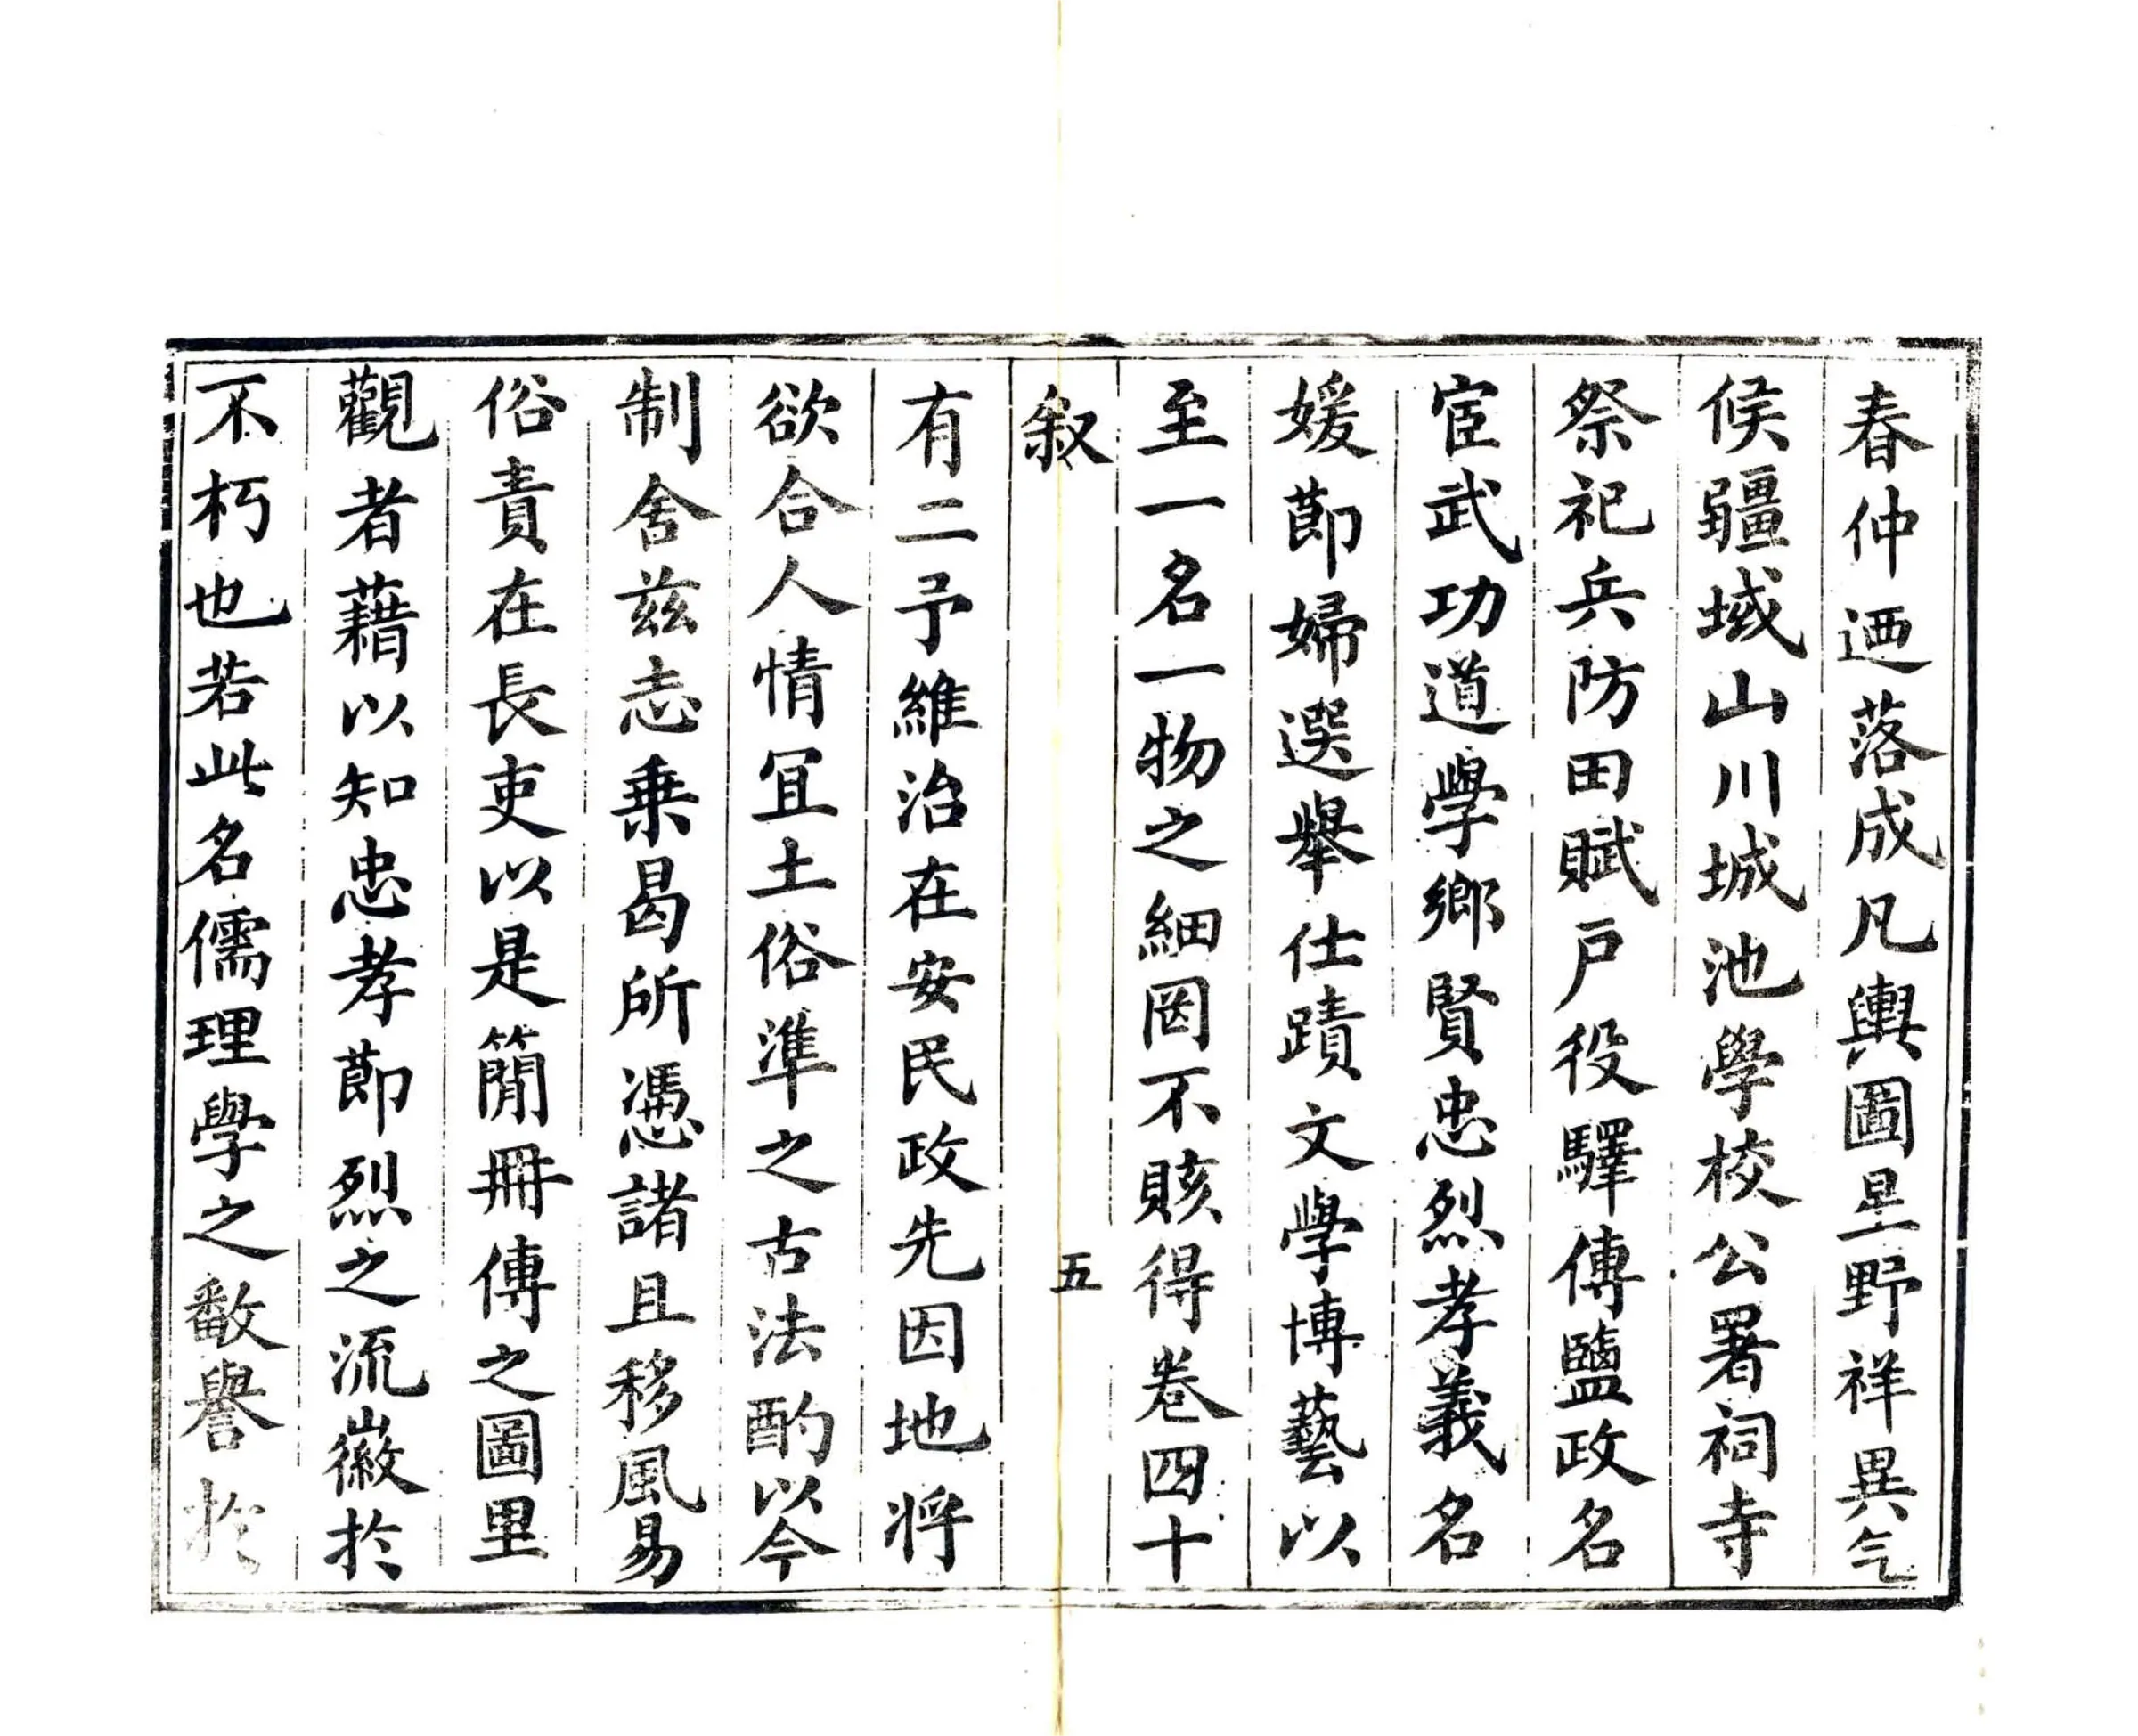 春仲迺落成凡輿圖星野祥異气
候疆域山川城池學校公署祠寺
祭祀兵防田賦戶役驛傳鹽政名
宦武功道學鄉賢忠烈孝義名
媛節婦選舉仕蹟文學博藝以
至一名一物之細罔不賅得卷四十
叙
五
有二予維治在安民政先因地将
欲合人情宜土俗準之古法酌以今
制舍茲志乗曷所憑諸且移風易
俗責在長吏以是簡冊傳之圖里
觀者藉以知忠孝節烈之流徽於
不朽也若此名儒理學之翻譽於